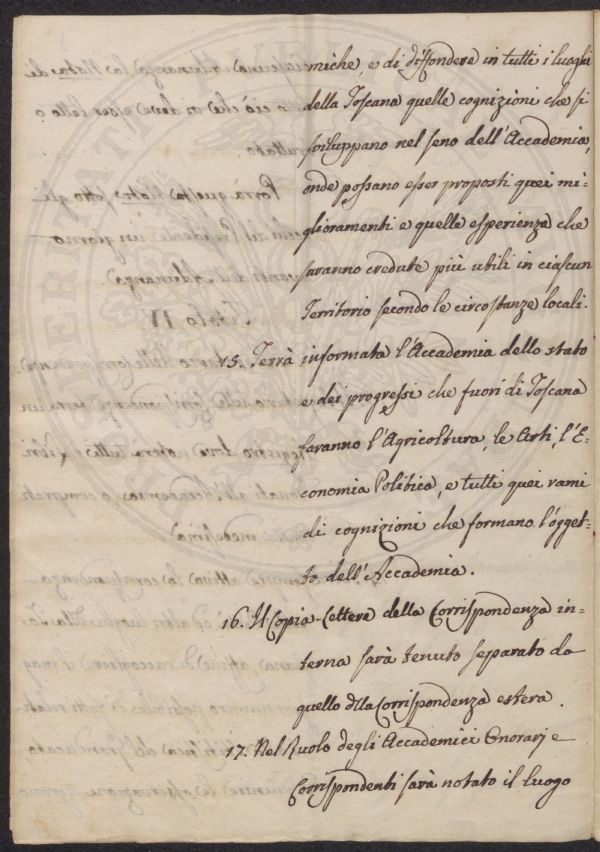 miche, e di diffondere in tutti i luoghi
della Toscana quelle cognizioni che si
sviluppano nel seno dell'Accademia,
onde possano esser proposti quei mi=
glioramenti e quelle esperienze che
saranno credute più utili in ciascun
Territorio secondo le circostanze locali.
15. Terrà informata l'Accademia dello stato
e dei progressi che fuori di Toscana
faranno l'Agricoltura, le Arti, l'E=
conomia Politica, e tutti quei rami
di cognizioni che formano l'ogget=
to dell'Accademia.
16. Il Copia-Lettere della Corrispondenza in=
terna sarà tenuto separato da
quello della Corrispondenza estera.
17. Nel Ruolo degli Accademici Onorarj e
Corrispondenti sarà notato il luogo